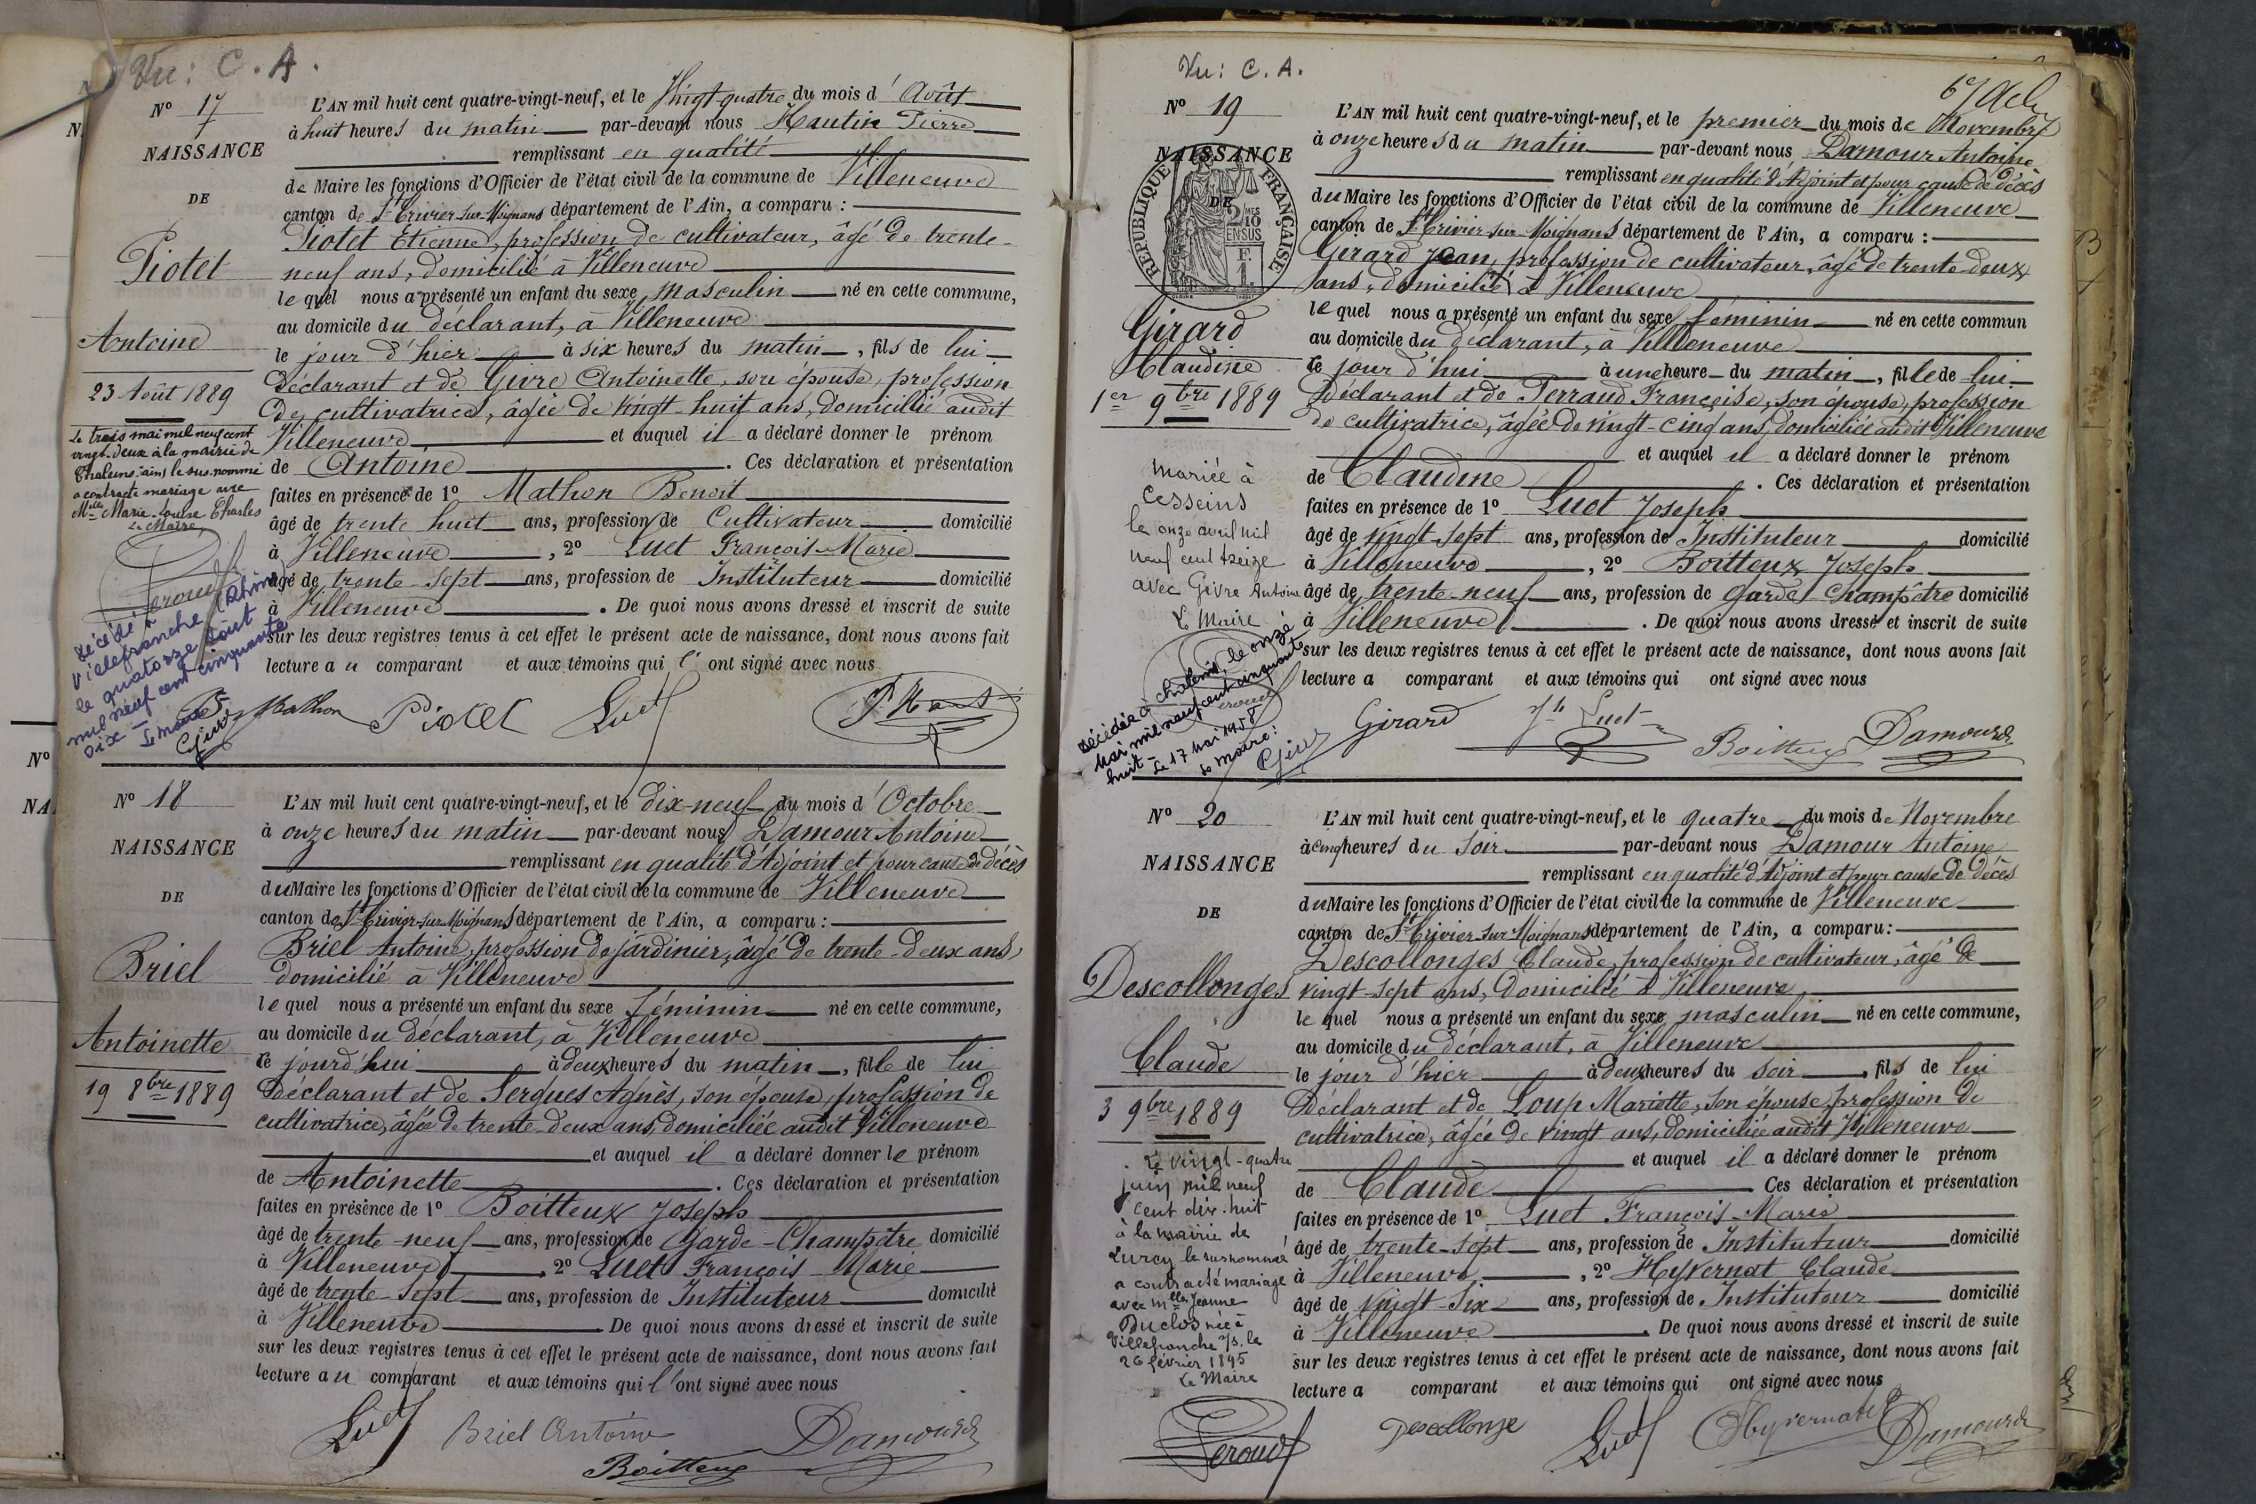 Vu: C. A.
N° 17
NAISSANCE
DE
Piotet
Antoine
23 Août 1889
Le trois mai mil neuf cent
vingt-deux à la mairie de
Chaleins (ain) le sus-nommé
a contracté mariage avec
Mlle Marie-Louise Charles
Le Maire
Décédé à
Villefranche (Rhône)
le quatorze Août
mil neuf cent cinquante
dix -
Le Maire
L'AN mil huit cent quatre-vingt-neuf, et le Vingt quatre du mois d' Août
à huit heures du matin par-devant nous Hautin Pierre
remplissant en qualité
de Maire les fonctions d'Officier de l'état civil de la commune de Villeneuve
canton de St Trivier-sur-Moignans département de l'Ain, a comparu :
Piotet Etienne, profession de cultivateur, âgé de trente-
neuf ans, domicilié à Villeneuve
le quel nous a présenté un enfant du sexe masculin né en cette commune,
au domicile du déclarant, à Villeneuve
le jour d'hier à six heures du matin, fils de lui
déclarant et de Givre Antoinette, son épouse, profession
de cultivatrice, âgée de vingt-huit ans, domiciliée audit
Villeneuve et auquel il a déclaré donner le prénom
de Antoine. Ces déclaration et présentation
faites en présence de 1° Mathon Benoit
âgé de trente huit ans, profession de Cultivateur domicilié
à Villeneuve, 2° Luet François-Marie
âgé de trente-sept ans, profession de Instituteur domicilié
à Villeneuve. De quoi nous avons dressé et inscrit de suite
sur les deux registres tenus à cet effet le présent acte de naissance, dont nous avons fait
lecture au comparant et aux témoins qui l'ont signé avec nous
Mathon Piotet Luet
N° 18
NAISSANCE
DE
Briel
Antoinette
19 8bre 1889
L'AN mil huit cent quatre-vingt-neuf, et le dix-neuf du mois d'Octobre
à onze heures du matin par-devant nous Damour Antoine
remplissant en qualité d'Adjoint et pour cause de décès
du Maire les fonctions d'Officier de l'état civil de la commune de Villeneuve
canton de St Trivier-sur-Moignans département de l'Ain, a comparu :
Briel Antoine, profession de jardinier, âgé de trente-deux ans,
domicilié à Villeneuve
le quel nous a présenté un enfant du sexe féminin né en cette commune,
au domicile du déclarant, à Villeneuve
ce jourd'hui à deux heures du matin, fille de lui
déclarant et de Sergues Agnès, son épouse, profession de
cultivatrice, âgée de trente-deux ans, domiciliée audit Villeneuve
et auquel il a déclaré donner le prénom
de Antoinette. Ces déclaration et présentation
faites en présence de 1° Boitteux Joseph
âgé de trente-neuf ans, profession de Garde-Champêtre domicilié
à Villeneuve, 2° Luet François Marie
âgé de trente-sept ans, profession de Instituteur domicilié
à Villeneuve De quoi nous avons dressé et inscrit de suite
sur les deux registres tenus à cet effet le présent acte de naissance, dont nous avons fait
lecture au comparant et aux témoins qui l'ont signé avec nous
Luet Briel Antoine Damour
Boitteux
Vu: C. A.
N° 19
NAISSANCE
DE
RÉPUBLIQUE FRANÇAISE
2/10MES
EN SUS
F.
1.
Girard
Claudine
1er 9bre 1889
Mariée à
Cesseins
le onze avril mil
neuf cent treize
avec Givre Antoine
Le Maire
Décédée à Chaleins le onze
Mai mil neuf cent cinquante
huit -
Le 17 Mai 1958
Le Maire :
L'AN mil huit cent quatre-vingt-neuf, et le premier du mois de Novembre
à onze heures du matin par-devant nous Damour Antoine
remplissant en qualité d'Adjoint et pour cause de décès
du Maire les fonctions d'Officier de l'état civil de la commune de Villeneuve
canton de St Trivier-sur-Moignans département de l'Ain, a comparu :
Girard Jean, profession de cultivateur, âgé de trente-deux
ans, domicilié à Villeneuve
le quel nous a présenté un enfant du sexe féminin né en cette commun
au domicile du déclarant, à Villeneuve
ce jour d'hui à une heure du matin, fille de lui
déclarant et de Perraud Françoise, son épouse, profession
de cultivatrice, âgée de vingt-cinq ans, domiciliée audit Villeneuve
et auquel il a déclaré donner le prénom
de Claudine. Ces déclaration et présentation
faites en présence de 1° Luet Joseph
âgé de vingt-sept ans, profession de Instituteur domicilié
à Villeneuve, 2° Boitteux Joseph
âgé de trente-neuf ans, profession de garde-champêtre domicilié
à Villeneuve. De quoi nous avons dressé et inscrit de suite
sur les deux registres tenus à cet effet le présent acte de naissance, dont nous avons fait
lecture a comparant et aux témoins qui ont signé avec nous
Girard Jh Luet Boitteux Damour
N° 20
NAISSANCE
DE
Descollonges
Claude
3 9bre 1889
Le vingt-quatre
juin mil neuf
cent dix-huit
à la mairie de
Lurcy le susnommé
a contracté mariage
avec Mlle Jeanne
Duclos née à
Villefranche s/s. le
26 février 1895
Le Maire
L'AN mil huit cent quatre-vingt-neuf, et le quatre du mois de Novembre
à cinq heures du soir par-devant nous Damour Antoine
remplissant en qualité d'Adjoint et pour cause de décès
du Maire les fonctions d'Officier de l'état civil de la commune de Villeneuve
canton de St Trivier-sur-Moignans département de l'Ain, a comparu :
Descollonges Claude, profession de cultivateur, âgé de
vingt-sept ans, domicilié à Villeneuve
le quel nous a présenté un enfant du sexe masculin né en cette commune,
au domicile du déclarant, à Villeneuve
le jour d'hier à deux heures du soir, fils de lui
déclarant et de Loup Mariette, son épouse, profession de
cultivatrice, âgée de vingt ans, domiciliée audit Villeneuve
et auquel il a déclaré donner le prénom
de Claude Ces déclaration et présentation
faites en présence de 1° Luet François-Marie
âgé de trente-sept ans, profession de Instituteur domicilié
à Villeneuve, 2° Hyvernat Claude
âgé de vingt-six ans, profession de Instituteur domicilié
à Villeneuve. De quoi nous avons dressé et inscrit de suite
sur les deux registres tenus à cet effet le présent acte de naissance, dont nous avons fait
lecture a comparant et aux témoins qui ont signé avec nous
Peroud Descollonge Luet Hyvernat Damour